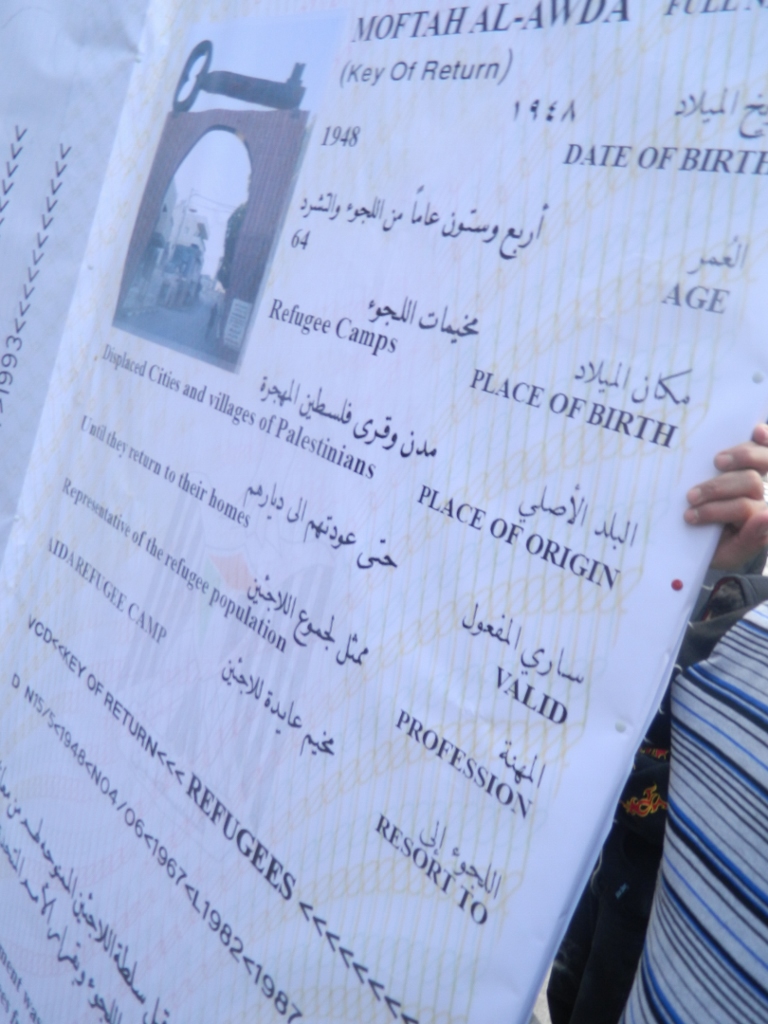 MOFTAH AL-AWDA
(Key Of Return)
١٩٤٨ الميلاد
1948 DATE OF BIRTH
أربع وستون عاماً من اللجوء والتشرد العمر
64 AGE
مخيمات اللجوء مكان الميلاد
Refugee Camps PLACE OF BIRTH
مدن وقرى فلسطين المهجرة البلد الأصلي
Displaced Cities and villages of Palestinians PLACE OF ORIGIN
حتى عودتهم الى ديارهم ساري المفعول
Until they return to their homes VALID
ممثل لجموع اللاجئين المهنة
Representative of the refugee population PROFESSION
مخيم عايدة للاجئين اللجوء إلى
AIDA REFUGEE CAMP RESORT TO
VCD<<KEY OF RETURN<<< REFUGEES <<<<<<<<<<<
D N15/5<1948<N04/06<1967<L1982<1987
>1993<<<<<<<<<